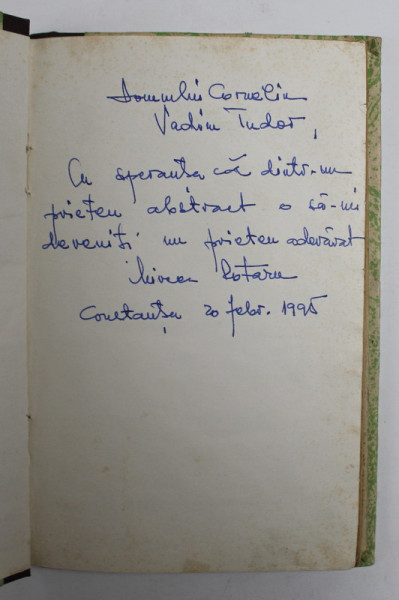 Domnului Corneliu
Vadim Tudor,
Cu speranța că dintr-un
prieten abstract o să-mi
deveniți un prieten adevărat
Mircea Rotaru
Constanța 20 febr. 1995